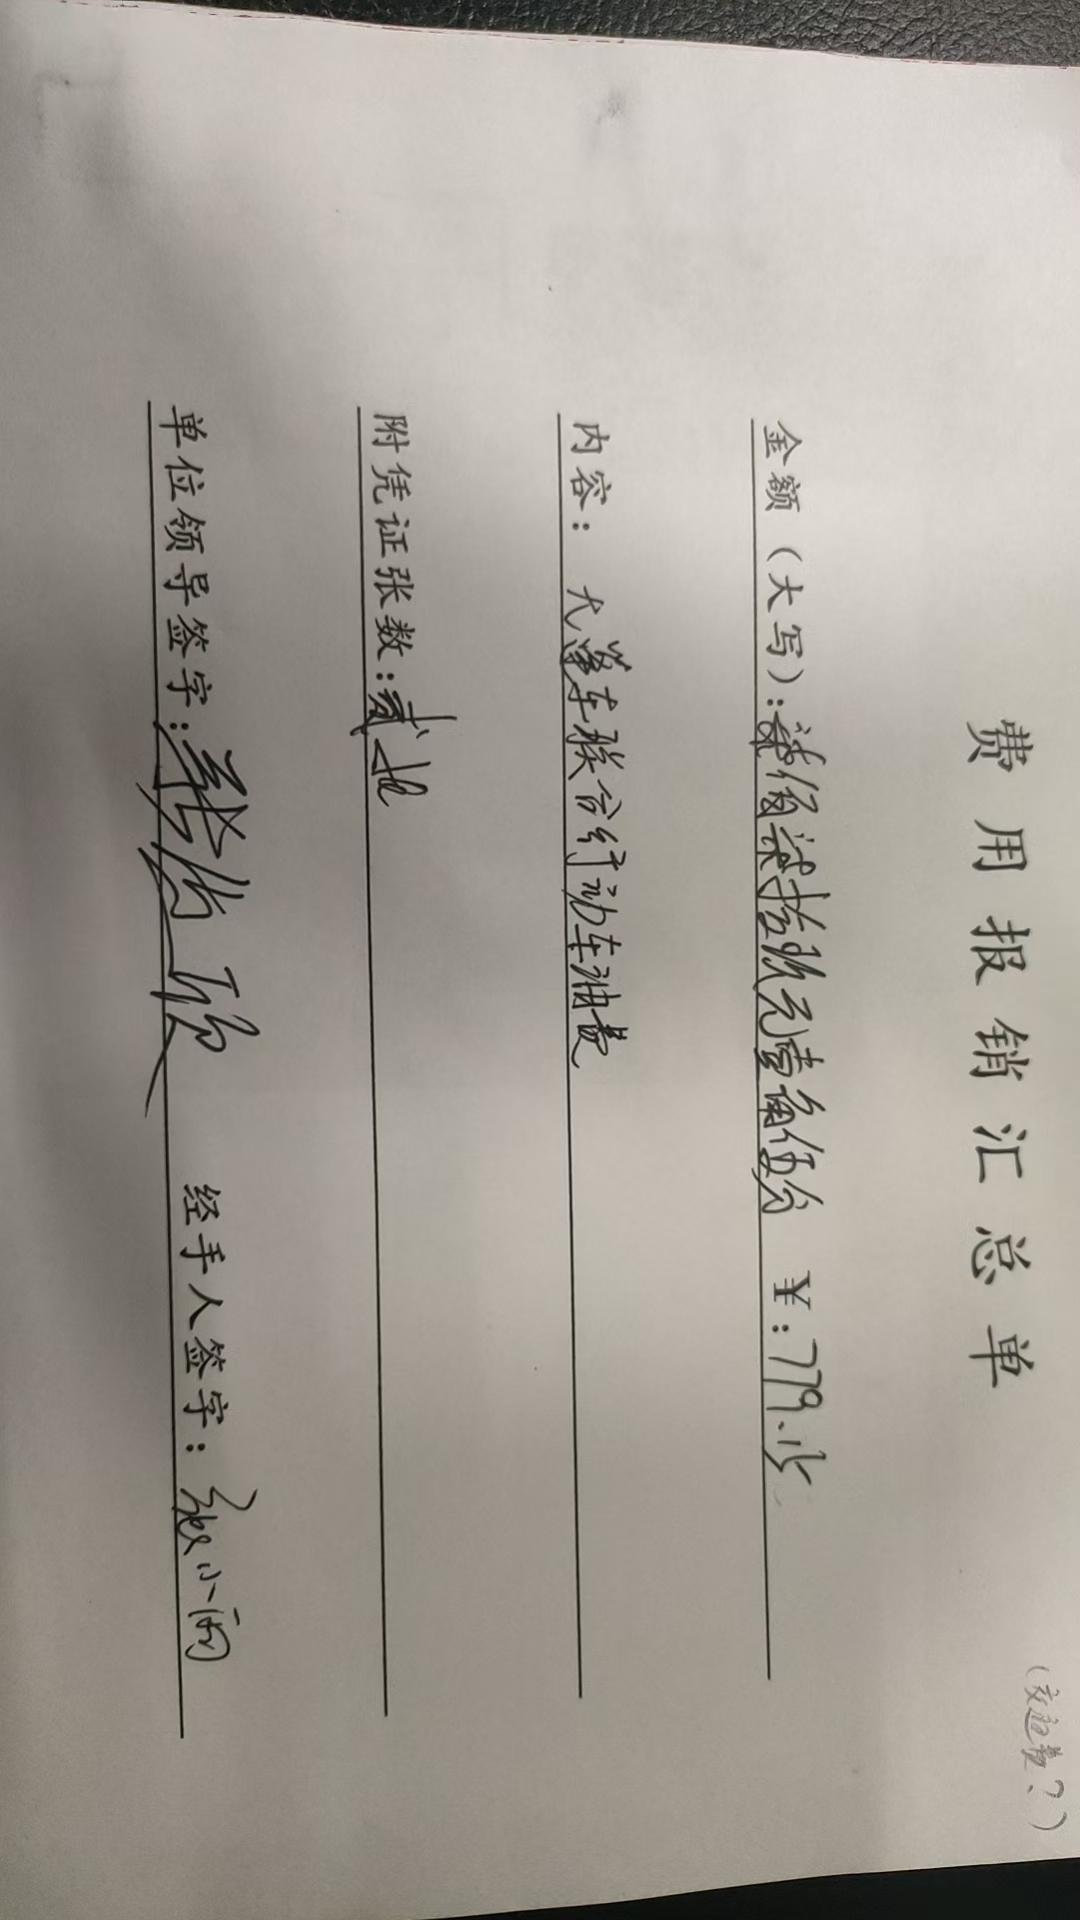 （交通费？）
费用报销汇总单
金额（大写）：柒佰柒拾玖元壹角伍分 ￥：779.15
内容： 尢莲车联合行动车油费
附凭证张数：贰张
单位领导签字： 经手人签字：张小雨